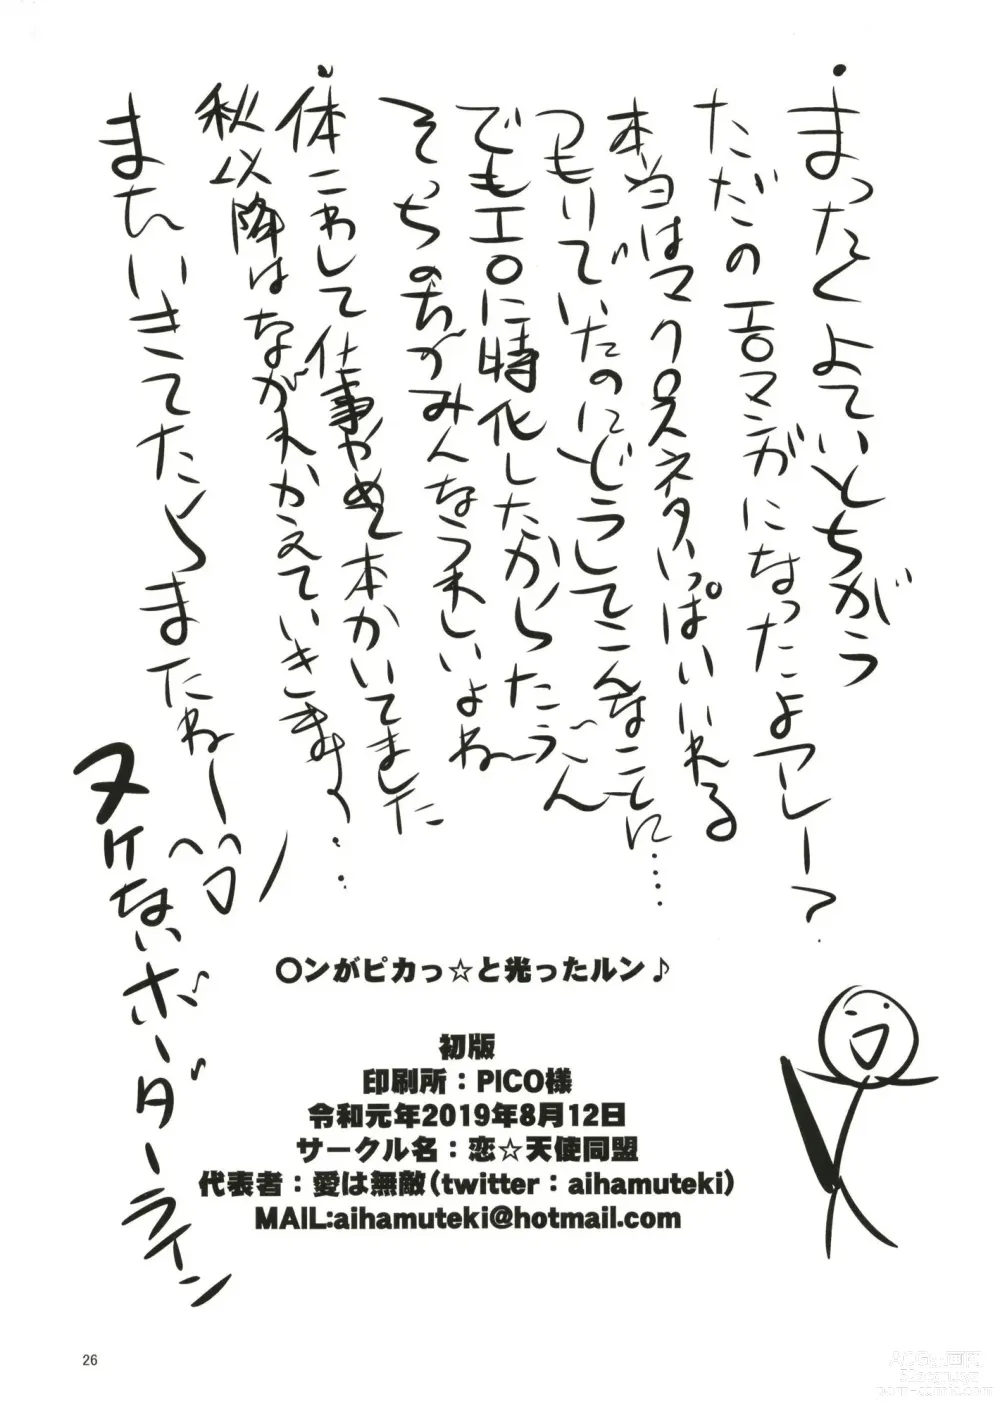 ・まったくよていとちがう
ただのエロマンガになったよアレー?
本当はマクロスネタいっぱいいれる
つもりでいたのにどうしてこんなことに……
でもエロに特化したからしたぶん
そっちのがみんなうれしいよね
・体こわして仕事やめて本かいてました
秋以降はながれかえていきます…
またいきてたらまたねー
ヌケないボーダーライン
〇ンがピカっ☆と光ったルン♪
初版
印刷所：PICO様
令和元年2019年8月12日
サークル名：恋☆天使同盟
代表者：愛は無敵(twitter：aihamuteki)
MAIL:aihamuteki@hotmail.com
26